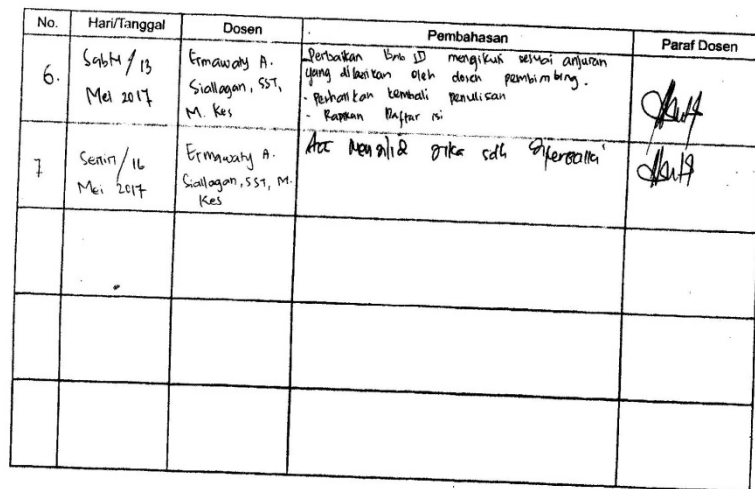 No. Hari/Tanggal Dosen Pembahasan Paraf Dosen
6.
Sabtu / 13
Mei 2017
Ermawaty A.
Siallagan, SST,
M. Kes
Perbaikan Bab mengikuti sesuai anjuran
yang oleh dosen pembimbing.
- Perhatikan kembali penulisan
- Rapikan Daftar isi
7
Senin / 16
Mei 2017
Ermawaty A.
Siallagan, SST, M.
Kes
Acc jika sdh diperbaiki